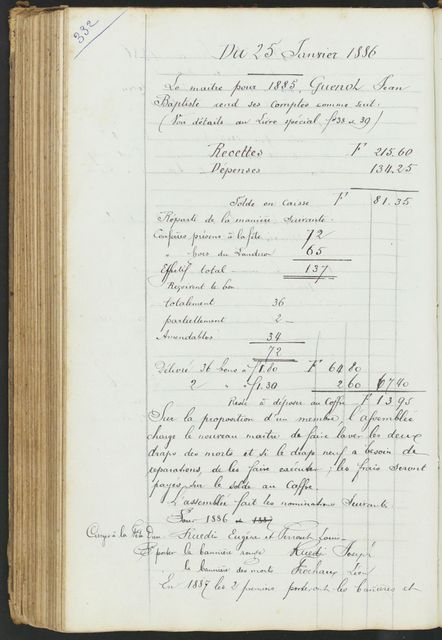 332
Du 25 Janvier 1886
Le maitre pour 1885, Guenot Jean
Baptiste rend ses comptes comme suit:
(Voir détails au Livre spécial f° 38 & 39)
Recettes F 215.60
Dépenses 134.25
Solde en caisse F 81.35
Réparti de la manière suivante:
Confrères présens à la fête 72
" hors du Landeron 65
Effectif total 137
Reçoivent le bon
totalement 36
partiellement 2
Amendables 34
72
Délivré 36 bons à f 1.80 F 64.80
2 " à f 1.30 2.60 67.40
Reste à déposer au Coffre F 13.95
Sur la proposition d'un membre, l'assemblée
charge le nouveau maitre de faire laver les deux
draps des morts et si le drap neuf a besoin de
réparations, de les faire exécuter; les frais seront
payés par le solde au Coffre.
L'assemblée fait les nominations suivants
Pour 1886 et 1887
Cierges à la Fête Dieu Ruedin Eugène et Louis
P. porter la bannière rouge Ruedin Joseph
" la bannière des morts Frochaux Léon
En 1887 les 2 premiers porteront les banières et